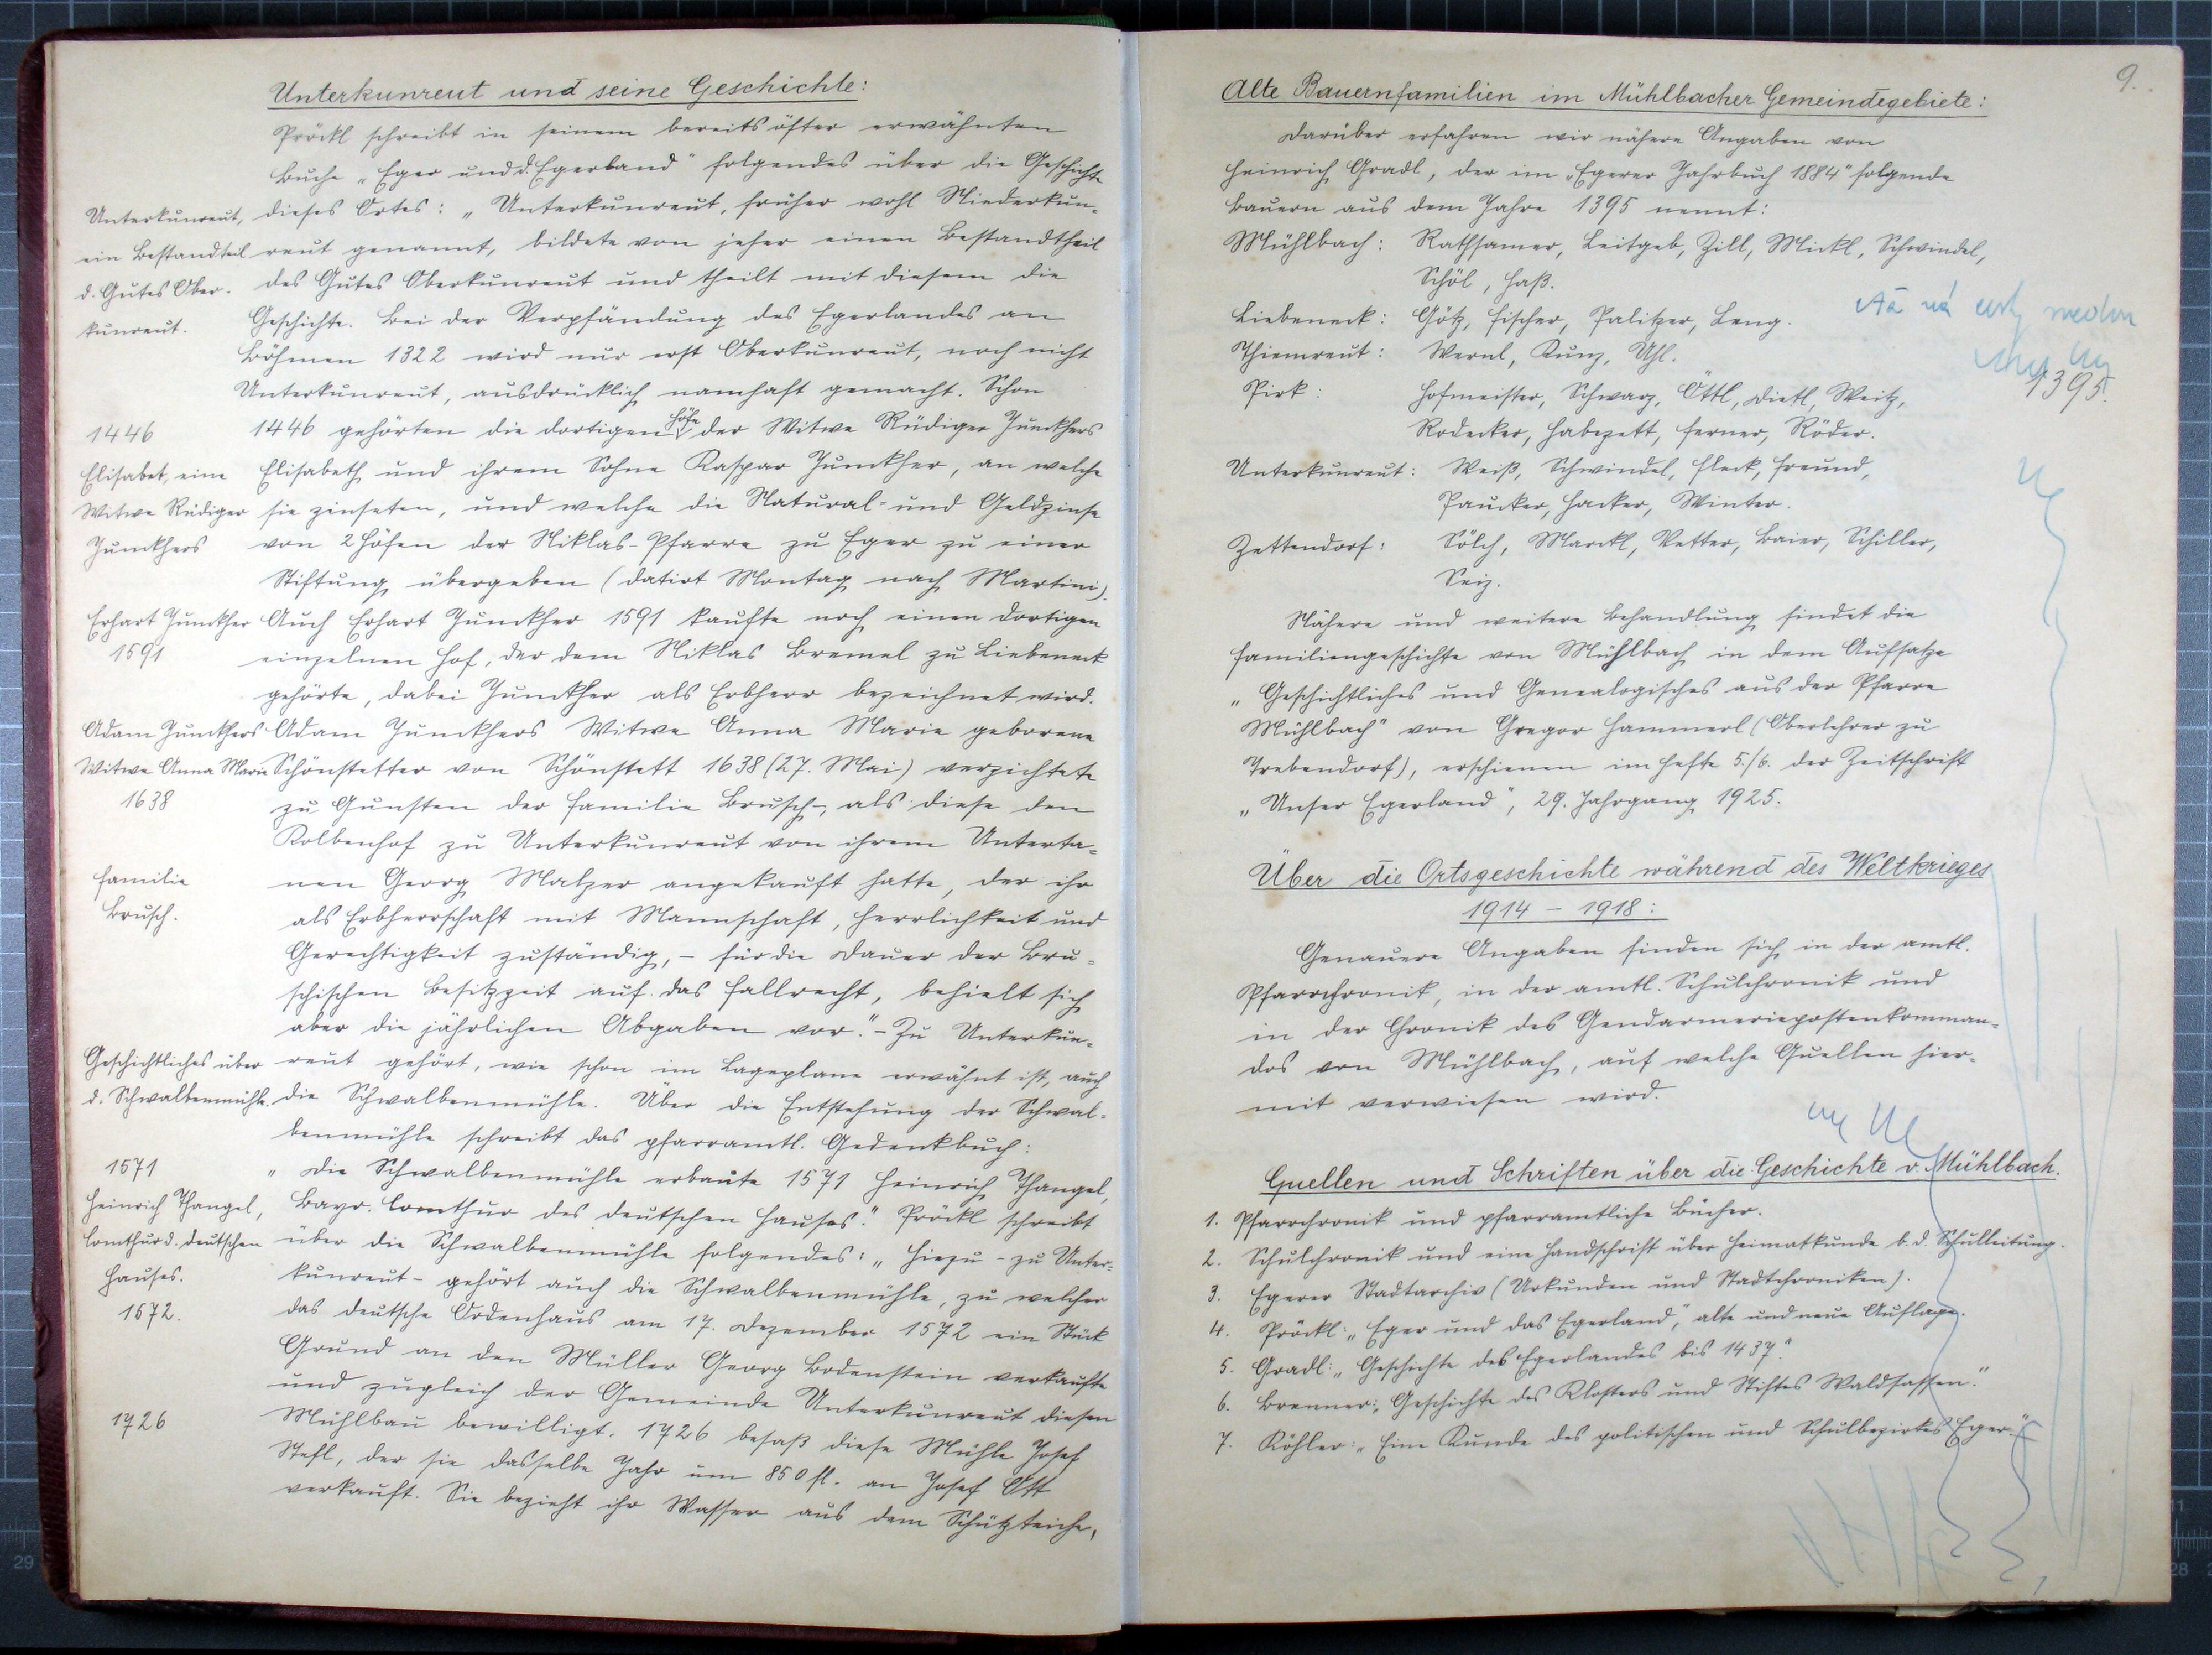 Unterkunreut und seine Geschichte:
Pröckl schreibt in seinem bereits öfter erwähnten
Buche „Eger und d. Egerland" folgendes über die Geschichte
Unterkunreut,
ein Bestandteil
d. Gutes Ober-
kunreut.
dieses Ortes: „Unterkunreut, früher wohl Niederkun-
reut genannt, bildete von jeher einen Bestandtheil
des Gutes Oberkunreut und theilt mit diesem die
Geschichte. Bei der Verpfändung des Egerlandes an
Böhmen 1322 wird nur erst Oberkunreut, noch nicht
Unterkunreut, ausdrücklich namhaft gemacht. Schon
1446
Elisabet, eine
Witwe Rüdiger
Junckhers
1446 gehörten die dortigen Höfe der Witwe Rüdiger Junckhers
Elisabeth und ihrem Sohne Kaspar Junckher, an welche
sie zinseten, und welche die Natural- und Geldzinse
von 2 Höfen der Niklas-Pfarre zu Eger zu einer
Stiftung übergeben (datirt Montag nach Martini).
Erhart Junckher
1591
Auch Erhart Junckher 1591 kaufte noch einen dortigen
einzelnen Hof, der dem Niklas Bremel zu Liebeneck
gehörte, dabei Junckher als Erbherr bezeichnet wird.
Adam Junckhers
Witwe Anna Marie
1638
Adam Junckhers Witwe Anna Marie geborene
Schönstetter von Schönstett 1638 (27. Mai) verzichtete
zu Gunsten der Familie Brusch-, als diese den
Kolbenhof zu Unterkunreut von ihrem Unterta-
Familie
Brusch.
nen Georg Matzer angekauft hatte, der ihr
als Erbherrschaft mit Mannschaft, Herrlichkeit und
Gerechtigkeit zuständig, - für die Dauer der Bru-
schischen Besitzzeit auf das Fallrecht, behielt sich
aber die jährlichen Abgaben vor." - Zu Unterkun-
Geschichtliches über
d. Schwalbenmühle.
reut gehört, wie schon im Lageplane erwähnt ist, auch
die Schwalbenmühle. Über die Entstehung der Schwal-
benmühle schreibt das pfarramtl. Gedenkbuch:
1571
Heinrich Thangel,
Comthur d. deutschen
Hauses.
1572.
„Die Schwalbenmühle erbaute 1571 Heinrich Thangel,
Bayr. Comthur des deutschen Hauses." Pröckl schreibt
über die Schwalbenmühle folgendes: „Hiezu - zu Unter-
kunreut - gehört auch die Schwalbenmühle, zu welcher
das deutsche Ordenhaus am 17. Dezember 1572 ein Stück
Grund an den Müller Georg Bodenstein verkaufte
und zugleich der Gemeinde Unterkunreut diesen
1726
Mühlbau bewilligt. 1726 besaß diese Mühle Josef
Stefl, der sie dasselbe Jahr um 850 fl. an Josef Ott
verkauft. Sie bezieht ihr Wasser aus dem Schützteiche,
9.
Alte Bauernfamilien im Mühlbacher Gemeindegebiete:
Darüber erfahren wir nähere Angaben von
Heinrich Gradl, der im „Egerer Jahrbuch 1884" folgende
Bauern aus dem Jahre 1395 nennt:
Mühlbach: Rathsamer, Leitgeb, Zill, Mickl, Schwindel,
Schöl, Haß.
Liebeneck: Götz, Fischer, Palitzer, Leng.
Thiemreut: Wernl, Kunz, Uhl.
1395.
Pirk: Hofmeister, Schwarz, Öttl, Dietl, Weitz,
Rodecker, Habezett, Ferner, Röder.
Unterkunreut: Weiß, Schwindel, Fleck, Freund,
Paucker, Hacker, Winter.
Zettendorf: Sölch, Marckl, Vetter, Baier, Schiller,
Seiz.
Nähere und weitere Behandlung findet die
Familiengeschichte von Mühlbach in dem Aufsatze
„Geschichtliches und Genealogisches aus der Pfarre
Mühlbach" von Gregor Hammerl (Oberlehrer zu
Trebendorf), erschienen im Hefte 5./6. der Zeitschrift
„Unser Egerland", 29. Jahrgang 1925.
Über die Ortsgeschichte während des Weltkrieges
1914 - 1918:
Genauere Angaben finden sich in der amtl.
Pfarrchronik, in der amtl. Schulchronik und
in der Chronik des Gendarmeriepostenkomman-
dos von Mühlbach, auf welche Quellen hier-
mit verwiesen wird.
Quellen und Schriften über die Geschichte v. Mühlbach.
1. Pfarrchronik und pfarramtliche Bücher.
2. Schulchronik und eine Handschrift über Heimatkunde b. d. Schulleitung.
3. Egerer Stadtarchiv (Urkunden und Stadtchroniken).
4. Pröckl: „Eger und das Egerland", alte und neue Auflage.
5. Gradl: „Geschichte des Egerlandes bis 1437."
6. Brenner: „Geschichte des Klosters und Stiftes Waldsassen."
7. Köhler: „Eine Kunde des politischen und Schulbezirkes Eger."